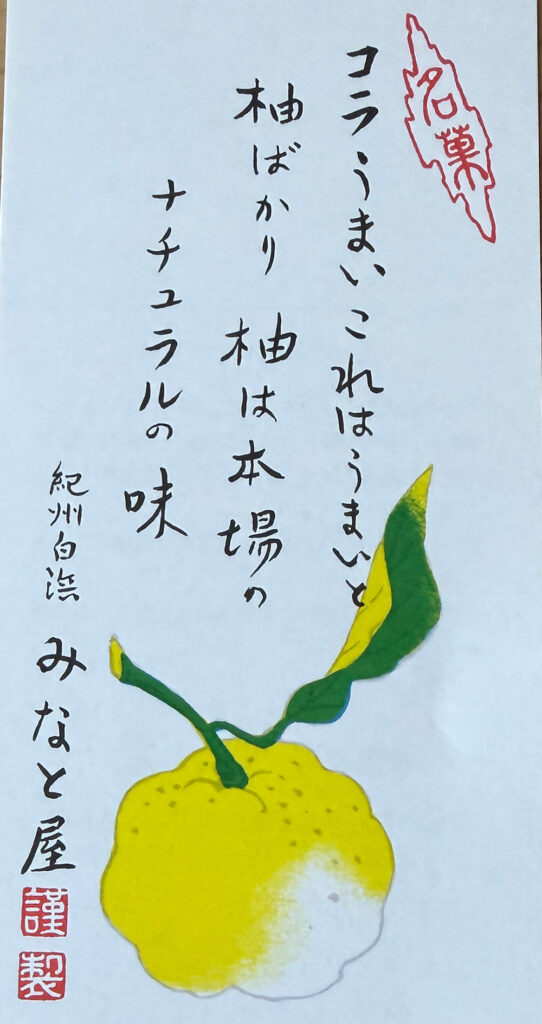 名菓
コラうまいこれはうまいと
柚ばかり 柚は本場の
ナチュラルの味
紀州白浜
みなと屋
謹製